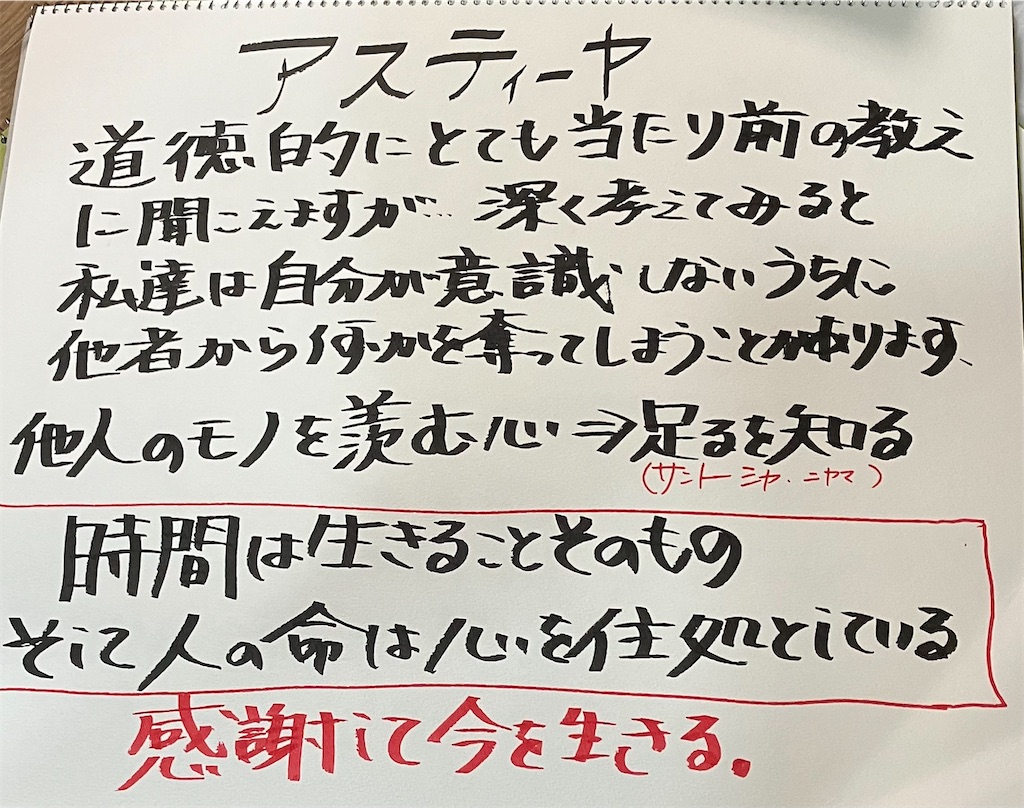 アスティーヤ
道徳的にとても当たり前の教え
に聞こえますが… 深く考えてみると
私達は自分が意識しないうちに
他者から何かを奪ってしまうことがあります、
他人のモノを羨む心⇒足るを知る
(サントーシャ・ニヤマ)
時間は生きることそのもの
そして人の命は心を住処としている
感謝して今を生きる。